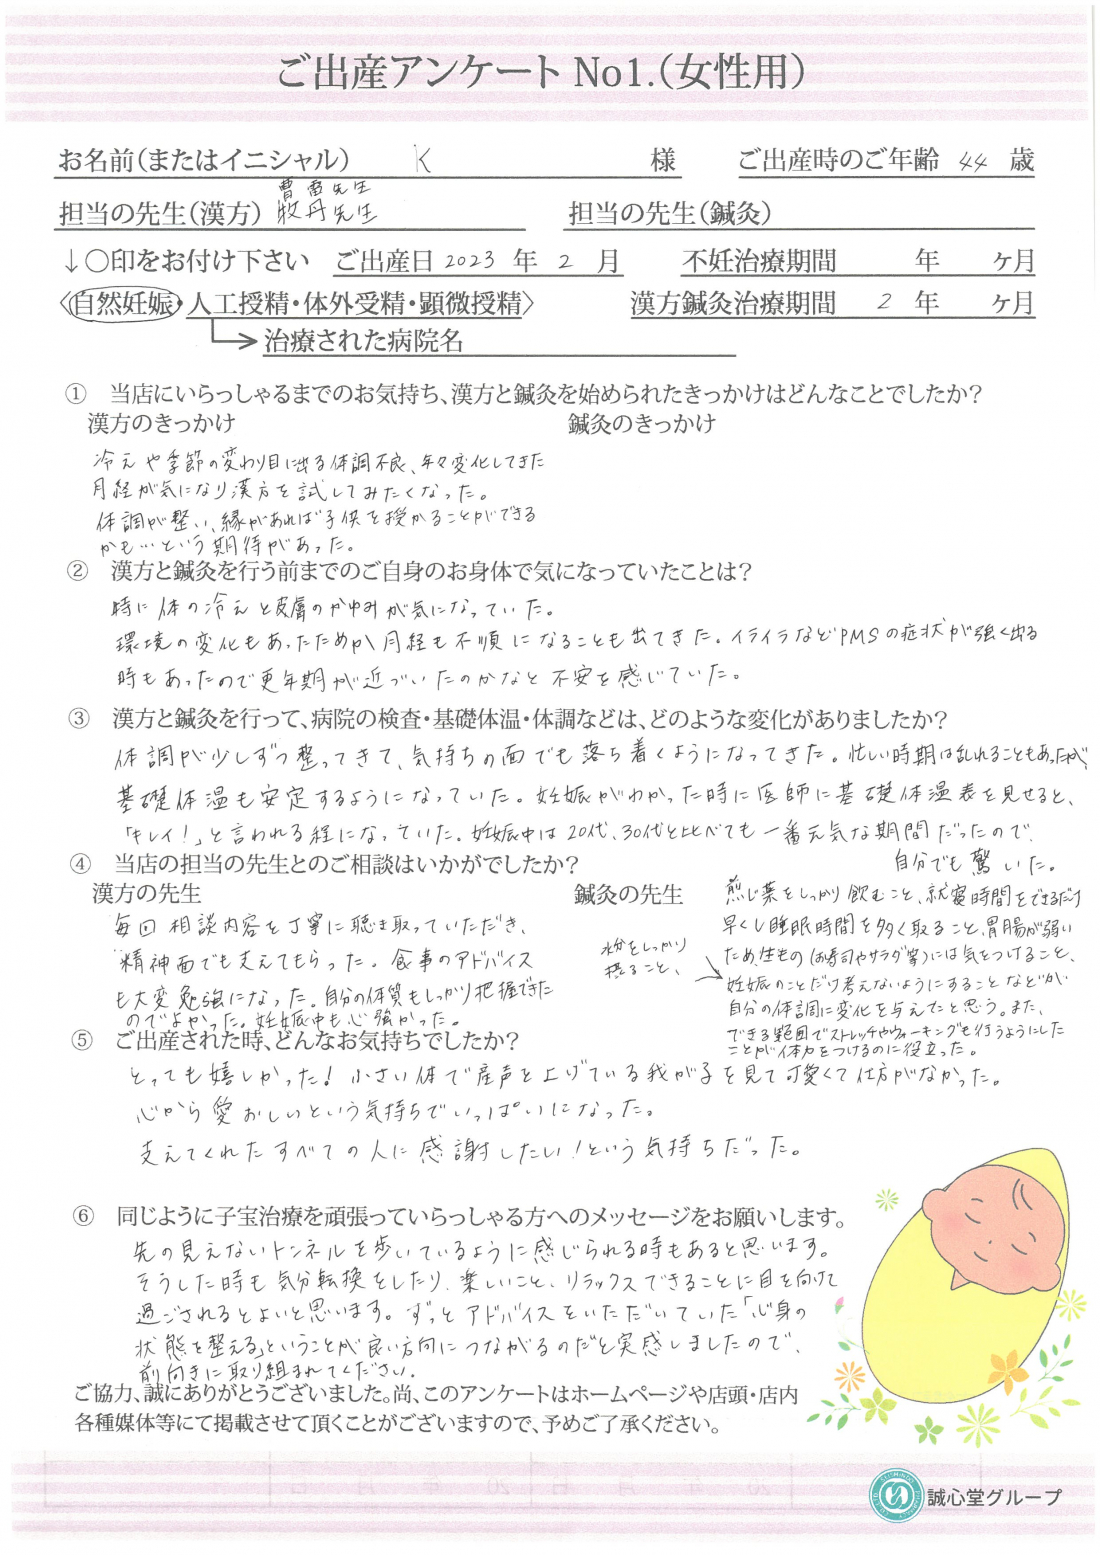 ご出産アンケート No1.（女性用）
お名前（またはイニシャル） K 様 ご出産時のご年齢 44 歳
曹雷先生
担当の先生（漢方） 牧丹先生 担当の先生（鍼灸）
↓〇印をお付け下さい ご出産日 2023 年 2 月 不妊治療期間 年 ヶ月
〈自然妊娠・人工授精・体外受精・顕微授精〉 漢方鍼灸治療期間 2 年 ヶ月
治療された病院名
① 当店にいらっしゃるまでのお気持ち、漢方と鍼灸を始められたきっかけはどんなことでしたか？
漢方のきっかけ 鍼灸のきっかけ
冷えや季節の変わり目に出る体調不良、年々変化してきた
月経が気になり漢方を試してみたくなった。
体調が整い、縁があれば子供を授かることができる
かも…という期待があった。
② 漢方と鍼灸を行う前までのご自身のお身体で気になっていたことは？
時に体の冷えと皮膚のかゆみが気になっていた。
環境の変化もあったためか月経も不順になることも出てきた。イライラなどPMSの症状が強く出る
時もあったので更年期が近づいたのかなと不安を感じていた。
③ 漢方と鍼灸を行って、病院の検査・基礎体温・体調などは、どのような変化がありましたか？
体調が少しずつ整ってきて、気持ちの面でも落ち着くようになってきた。忙しい時期は乱れることもあったが、
基礎体温も安定するようになっていた。妊娠がわかった時に医師に基礎体温表を見せると、
「キレイ！」と言われる程になっていた。妊娠中は20代、30代と比べても一番元気な期間だったので、
自分でも驚いた。
④ 当店の担当の先生とのご相談はいかがでしたか？
漢方の先生 鍼灸の先生
毎回相談内容を丁寧に聴き取っていただき、
精神面でも支えてもらった。食事のアドバイス
も大変勉強になった。自分の体質もしっかり把握できた
のでよかった。妊娠中も心強かった。
水分をしっかり
摂ること、
煎じ薬をしっかり飲むこと、就寝時間をできるだけ
早くし睡眠時間を多く取ること、胃腸が弱い
ため、生もの（お寿司やサラダ等）には気をつけること、
妊娠のことだけ考えないようにすることなどが
自分の体調に変化を与えたと思う。また、
できる範囲でストレッチやウォーキングも行うようにした
ことが体力をつけるのに役立った。
⑤ ご出産された時、どんなお気持ちでしたか？
とっても嬉しかった！小さい体で産声を上げている我が子を見て可愛くて仕方がなかった。
心から愛おしいという気持ちでいっぱいになった。
支えてくれたすべての人に感謝したい！という気持ちだった。
⑥ 同じように子宝治療を頑張っていらっしゃる方へのメッセージをお願いします。
先の見えないトンネルを歩いているように感じられる時もあると思います。
そうした時も気分転換をしたり、楽しいこと、リラックスできることに目を向けて
過ごされるとよいと思います。ずっとアドバイスをいただいていた「心身の
状態を整える」ということが良い方向につながるのだと実感しましたので、
前向きに取り組まれてください。
ご協力、誠にありがとうございました。尚、このアンケートはホームページや店頭・店内
各種媒体等にて掲載させて頂くことがございますので、予めご了承ください。
誠心堂グループ